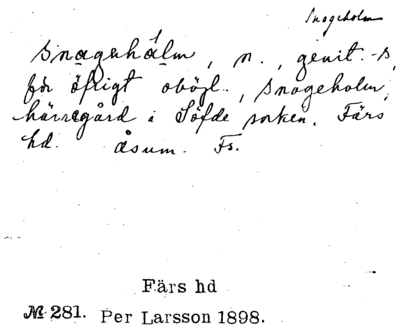 Snogeholm
snagehálm, n., genit. -s,
för öfrigt oböjl., Snogeholm,
härregård i Söfde socken. Färs
hd. Åsum. Fs.
Färs hd
№ 281. Per Larsson 1898.